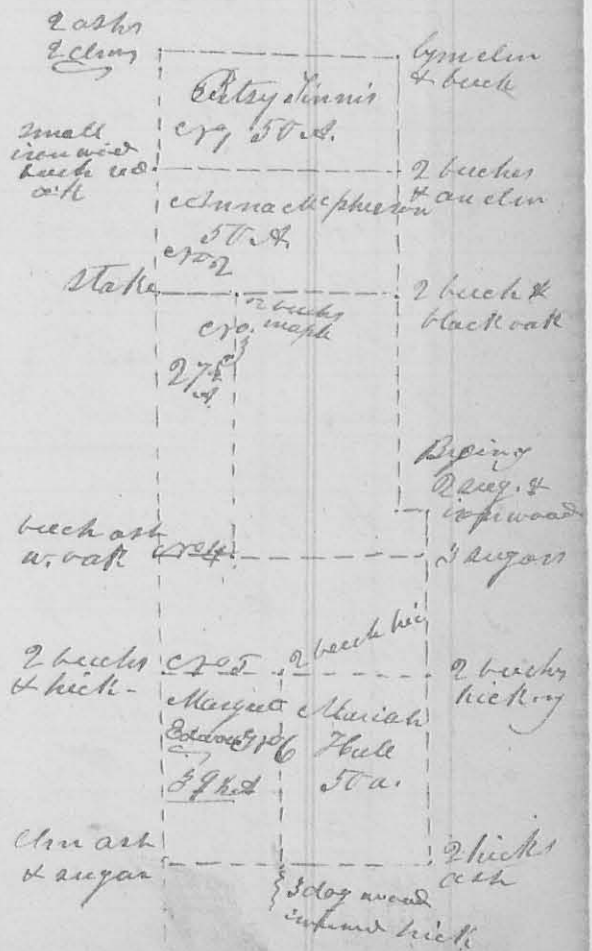 2 ash
2 elms
lynn elm
& beech
Betsy Finnis
No 1 50 A.
small
ironwood
beech red
oak
2 beeches
& an elm
Anna McPherson
50 A.
No 2
Stake
2 beech &
black oak
2 beechs
maple
No. 3
27½
A
Begin
2 sug. &
ironwood
beech ash
w. oak
No 4
3 sugars
2 beechs
& hick-
No 5
2 beech hic
2 beechs
hickory
Margret
Edwards
39 A
No 6
Mariah
Hall
50 a.
elm ash
& sugar
2 hicks
ash
3 dogwood
ironwood hick